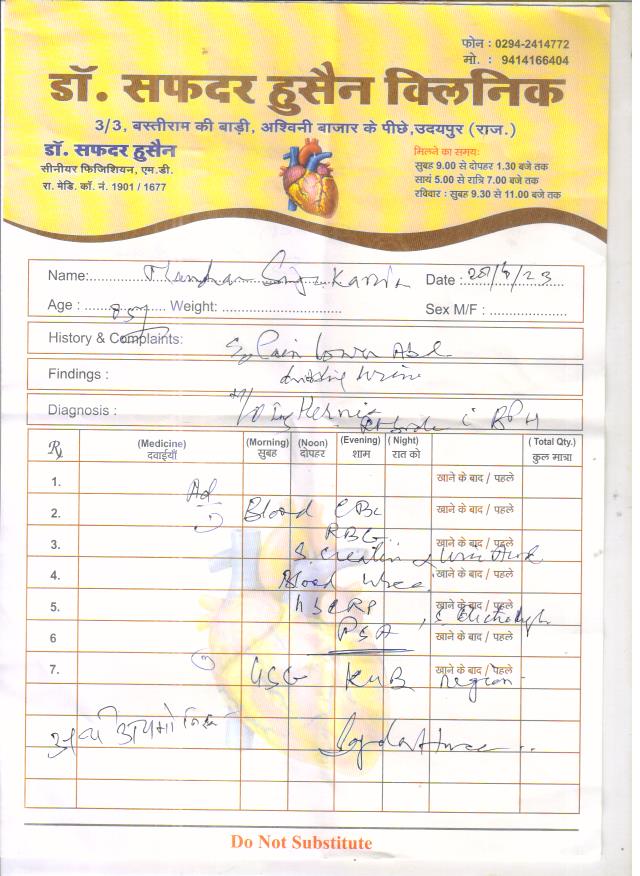 फोन : 0294-2414772
मो. : 9414166404
डॉ. सफदर हुसैन क्लिनिक
3/3, बस्तीराम की बाड़ी, अश्विनी बाजार के पीछे,उदयपुर (राज.)
डॉ. सफदर हुसैन
सीनीयर फिजिशियन, एम.डी.
रा. मेडि. कॉ. नं. 1901 / 1677
मिलने का समय:
सुबह 9.00 से दोपहर 1.30 बजे तक
सायं 5.00 से रात्रि 7.00 बजे तक
रविवार : सुबह 9.30 से 11.00 बजे तक
Name: Date :
Age : Weight: Sex M/F :
History & Complaints: Pain Lower Abd
Findings : Urine
Diagnosis : Hernia BPH
Rx (Medicine) दवाईयाँ (Morning) सुबह (Noon) दोपहर (Evening) शाम (Night) रात को (Total Qty.) कुल मात्रा
1. खाने के बाद / पहले
Ad
2. Blood CBC खाने के बाद / पहले
RBG
3. खाने के बाद / पहले
S. Creatin
4. Blood Urea खाने के बाद / पहले
5. hSCRP खाने के बाद / पहले
6 PSA खाने के बाद / पहले
7. USG KUB region खाने के बाद / पहले
Do Not Substitute